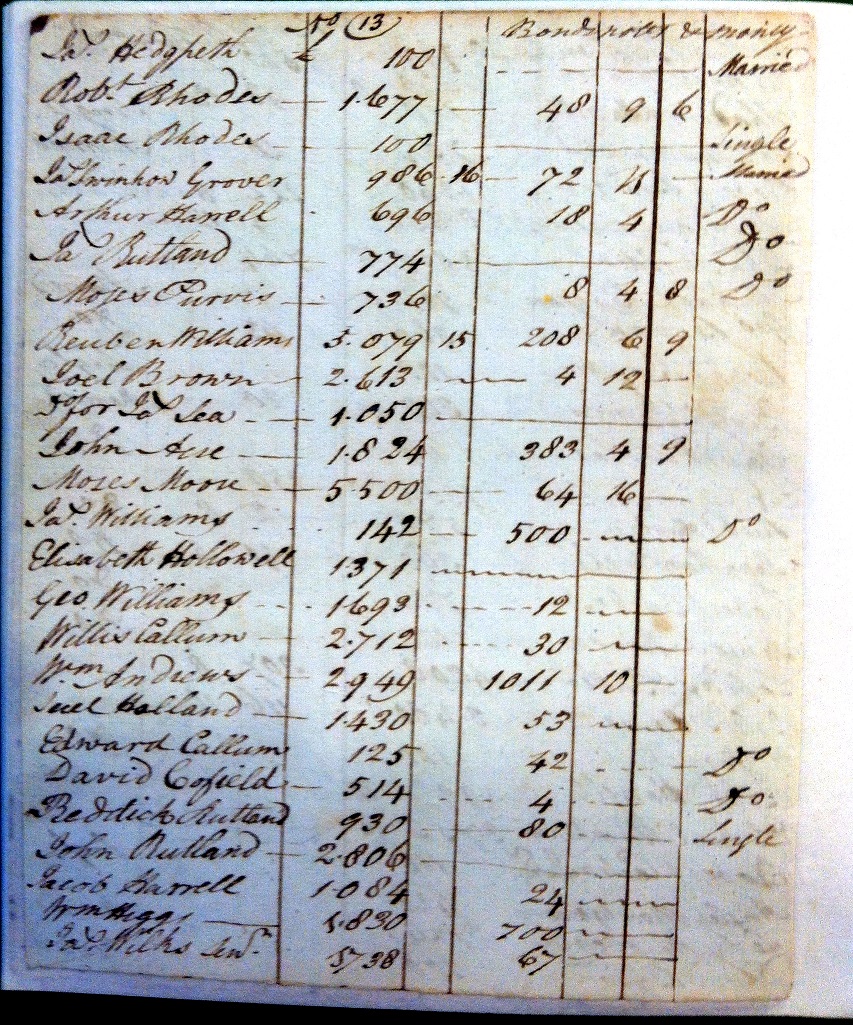 No (13) Bonds notes & money
Jas. Hedgpeth £ 100 Married
Robt. Rhodes 1.677 48 9 6
Isaac Rhodes 100 Single
Jas. Swinhow Grover 986 16 72 4 Married
Arthur Harrell 696 18 4 Do
Jas. Rutland 774 Do
Moses Purvis 736 8 4 8 Do
Reuben Williams 5.079 15 208 6 9
Joel Brown 2.613 4 12
Do for Jas. Lea 1.050
John Acre 1.824 383 4 9
Moses Moore 5.500 64 16
Jas. Williams 142 500 Do
Elisabeth Hollowell 1371
Geo. Williams 1.693 12
Willis Callum 2.712 30
Wm. Andrews 2949 1011 10
Holland 1.430 53
Edward Callum 125 42 Do
David Cofield 514 4 Do
Reddick Rutland 930 80 Single
John Rutland 2.806
Jacob Harrell 1.084 24
Wm Higgs 1.830 700
Jas. Wilks Senr. 738 67